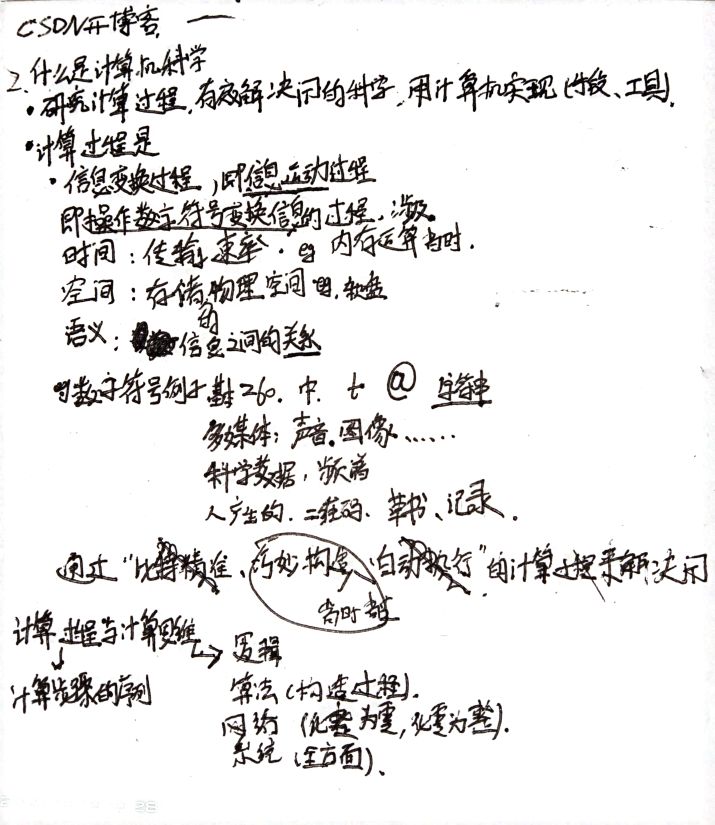 CSDN开博客. 一
2. 什么是计算机科学
• 研究计算过程,有效解决问的科学,用计算机实现(手段、工具).
• 计算过程是
• 信息变换过程,即信息运动过程
即操作数字符号变换信息的过程.涉及.
时间:传输速率. eg 内存运算当时.
空间:存储的物理空间 软盘
语义:信息之间的关系
数字符号例子 260. 中. t @ 字符串
多媒体:声音.图像......
科学数据,
人产生的.二维码、草书、记录.
通过"比特精准、巧妙构造、自动执行"的计算过程来解决问
计算过程与计算思维 → 逻辑
↓
计算步骤的序列
算法(构造过程).
网络(化整为零,化零为整).
系统(全方面).